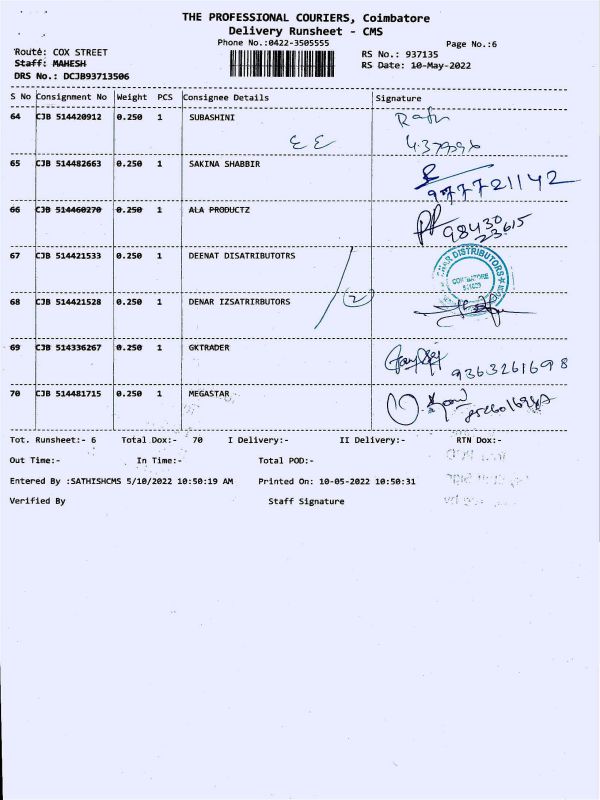 THE PROFESSIONAL COURIERS, Coimbatore
Delivery Runsheet - CMS
Phone No.:0422-3505555
Page No.:6
Route: COX STREET
RS No.: 937135
Staff: MAHESH
RS Date: 10-May-2022
DRS No.: DCJB93713506
S No Consignment No Weight PCS Consignee Details Signature
64 CJB 514420912 0.250 1 SUBASHINI
65 CJB 514482663 0.250 1 SAKINA SHABBIR
977721142
66 CJB 514460270 0.250 1 ALA PRODUCTZ
98430
23615
67 CJB 514421533 0.250 1 DEENAT DISATRIBUTOTRS
DISTRIBUTORS
COIMBATORE
68 CJB 514421528 0.250 1 DENAR IZSATRIRBUTORS
2
69 CJB 514336267 0.250 1 GKTRADER
9363261698
70 CJB 514481715 0.250 1 MEGASTAR
Tot. Runsheet:- 6 Total Dox:- 70 I Delivery:- II Delivery:- RTN Dox:-
Out Time:- In Time:- Total POD:-
Entered By :SATHISHCMS 5/10/2022 10:50:19 AM Printed On: 10-05-2022 10:50:31
Verified By Staff Signature